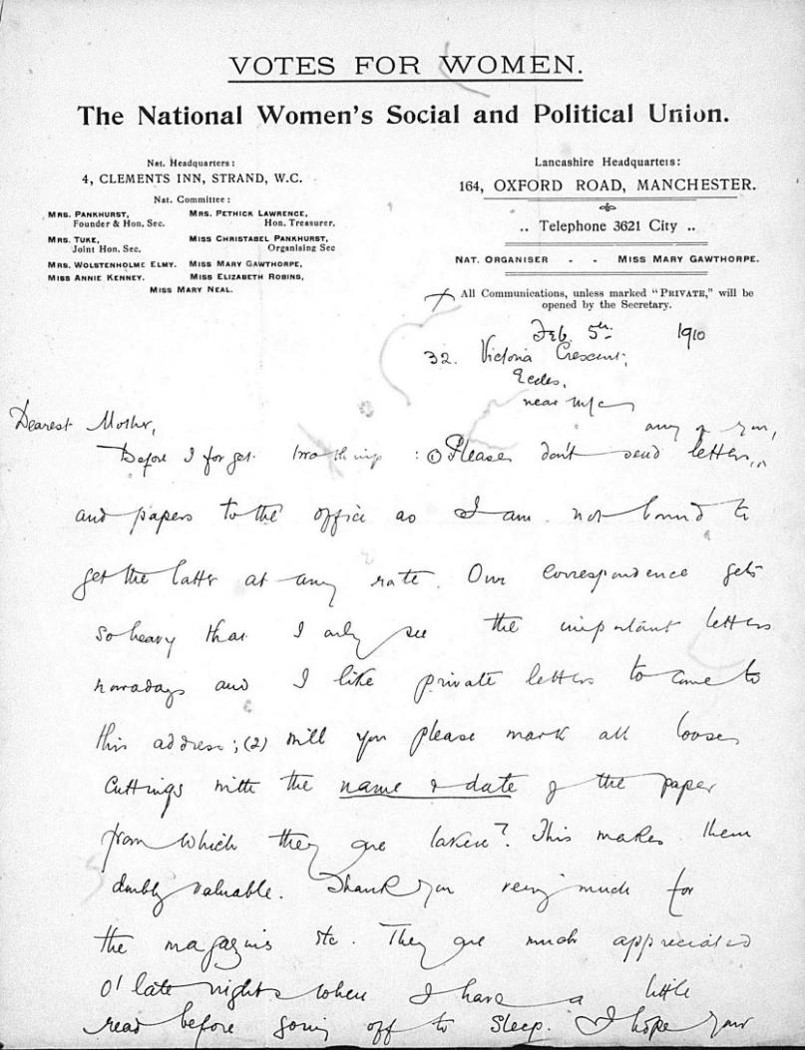 VOTES FOR WOMEN.
The National Women's Social and Political Union.
Nat. Headquarters:
4, CLEMENTS INN, STRAND, W.C.
Nat. Committee:
MRS. PANKHURST,
Founder & Hon. Sec.
MRS. PETHICK LAWRENCE,
Hon. Treasurer.
MRS. TUKE,
Joint Hon. Sec.
MISS CHRISTABEL PANKHURST,
Organising Sec
MRS. WOLSTENHOLME ELMY.
MISS MARY GAWTHORPE,
MISS ANNIE KENNEY.
MISS ELIZABETH ROBINS,
MISS MARY NEAL.
Lancashire Headquarters:
164, OXFORD ROAD, MANCHESTER.
.. Telephone 3621 City ..
NAT. ORGANISER - - MISS MARY GAWTHORPE.
All Communications, unless marked "PRIVATE," will be
opened by the Secretary.
Feb. 5th 1910
32. Victoria Crescent,
Eccles,
near M/c
Dearest Mother,
any of you,
Before I forget two things : (1) Please don't send letters,
and papers to the office as I am not bound to
get the latter at any rate. Our correspondence gets
so heavy that I only see the important letters
nowadays and I like private letters to come to
this address; (2) will you please mark all loose
cuttings with the name & date of the paper
from which they are taken? This makes them
doubly valuable. Thank you very much for
the magazines etc. They are much appreciated
o' late nights when I have a little
read before going off to sleep. I hope your